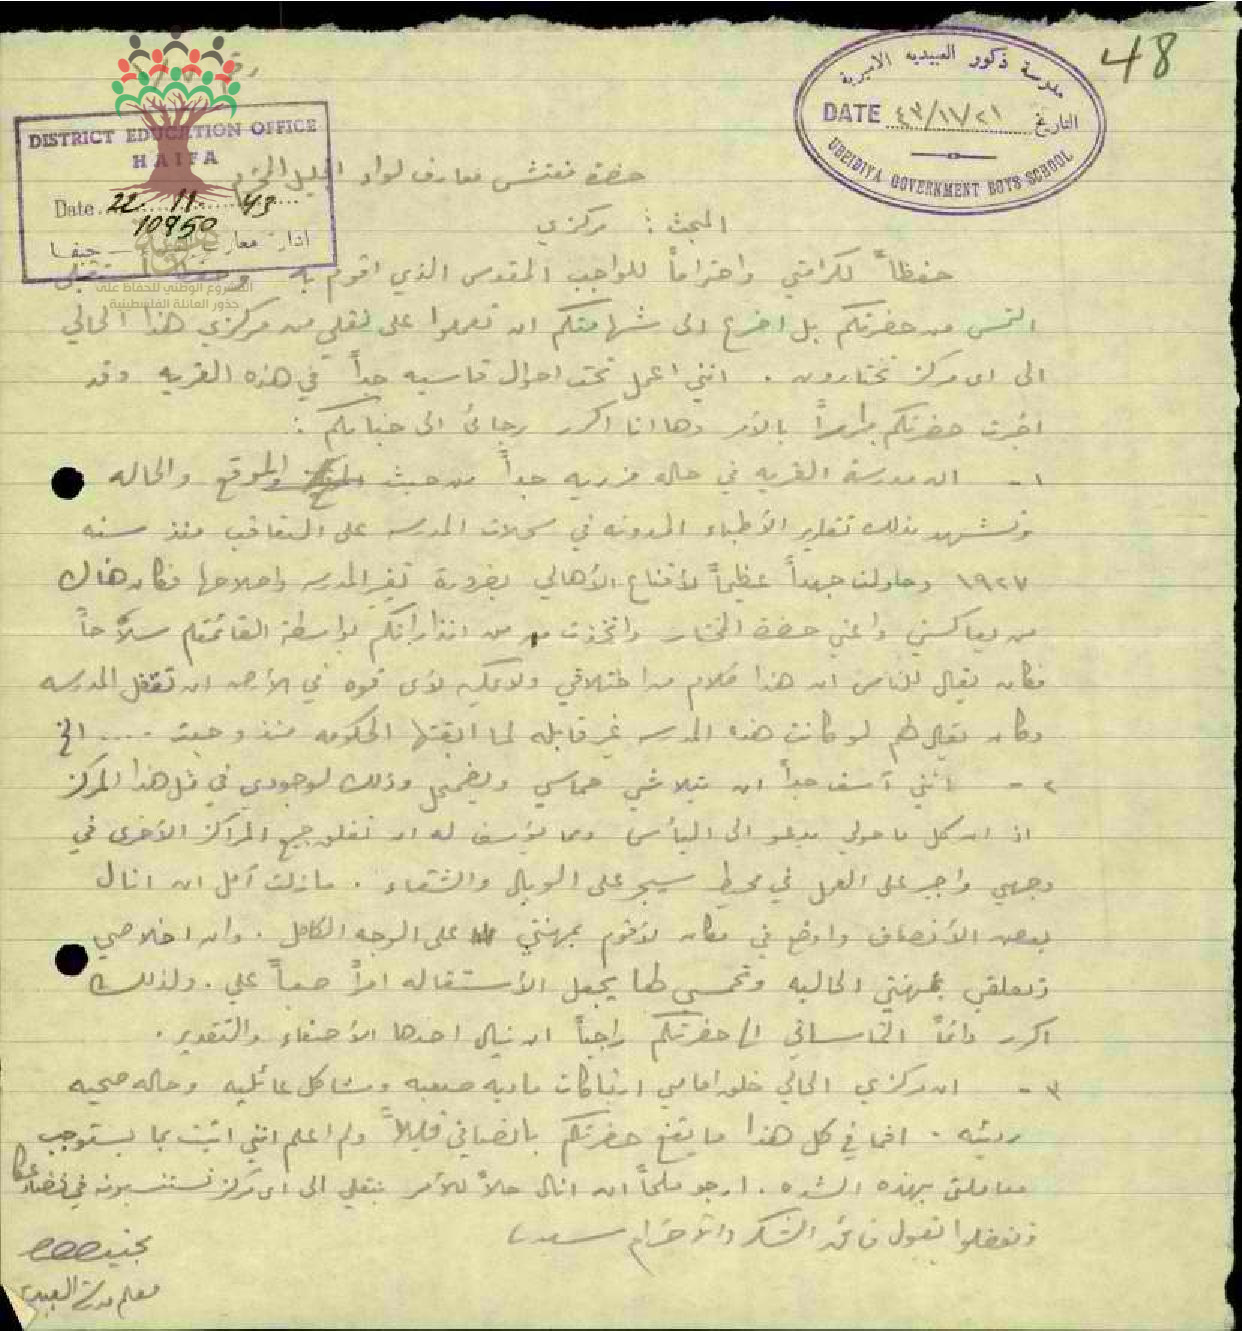 48
مدرسة ذكور العبيدية الاميرية
DATE ٤٣/١١/٢١ التاريخ
UBEIDIYA GOVERNMENT BOYS SCHOOL
DISTRICT EDUCATION OFFICE
HAIFA
Date 22 11 43
10950
ادارة معارف حيفا
المشروع الوطني للحفاظ على
جذور العائلة الفلسطينية
حضرة مفتش معارف لواء الجليل المحترم
المبحث : مركزي
حفظاً لكرامتي واحتراماً للواجب المقدس الذي اقوم به
التمس من حضرتكم بل اضرع الى شهامتكم ان تعملوا على نقلي من مركزي هذا الحالي
الى اي مركز تختارون . انني اعمل تحت احوال قاسيه جداً في هذه القريه وقد
اخبرت حضرتكم مراراً بالأمر وها انا اكرر رجائي الى جنابكم :
١ - ان مدرسة القريه في حاله مزريه جداً من حيث الموقع والحاله
وتشهد بذلك تقارير الأطباء المدونه في سجلات المدرسه على التعاقب منذ سنه
١٩٢٧ وحاولت جهداً عظيماً لأقناع الأهالي بضرورة تغير المدرسه واصلاحها فكان هناك
من يعاكسني واعني حضرة المختار واتخذت من انذاراتكم بواسطة القائمقام سلاحاً
فكان يقال للناس ان هذا كلام من اختلاقي ولا يمكن لأي قوه في الأرض ان تقفل المدرسه
وكان يقال لهم لو كانت هذه المدرسه غير قابله لما ابقتها الحكومه منذ وجدت .... الخ
٢ - انني آسف جداً ان يتلاشى حماسي ويضمحل وذلك لوجودي في مثل هذا المركز
اذ ان كل ما حولي يدعو الى اليأس ومما يؤسف له ان تغلق جميع المراكز الأخرى في
وجهي واجبر على العمل في محيط سيجر علي الوبال والشقاء . ما زلت آمل ان انال
بعض الأنصاف واوضع في مكان لأقوم بمهنتي على الوجه الكامل . وان اخلاصي
وتعلقي بمهنتي الحاليه وتحمسي لها يجعل الأستقاله امراً صعباً علي . ولذلك
اكرر دائماً التماساتي الى حضرتكم راجياً ان ينال احدها الأصغاء والتقدير .
٣ - ان مركزي الحالي خلق امامي ارتباكات ماديه صعبه ومشاكل عائليه وحاله صحيه
رديئه . افما في كل هذا ما يقنع حضرتكم بانصافي قليلاً ولم اعلم انني اتيت بما يستوجب
معاملتي بهذه الشده . ارجو ملحاً ان انال حلاً للأمر بنقلي الى اي مركز تستنسبونه في قضاء عكا
وتفضلوا بقبول فائق الشكر والأحترام سيدي
معلم مدرسة العبيديه